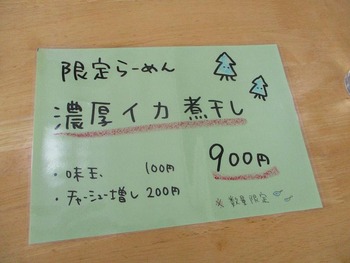 限定らーめん
濃厚イカ煮干し
900円
・味玉 100円
・チャーシュー増し 200円
※数量限定